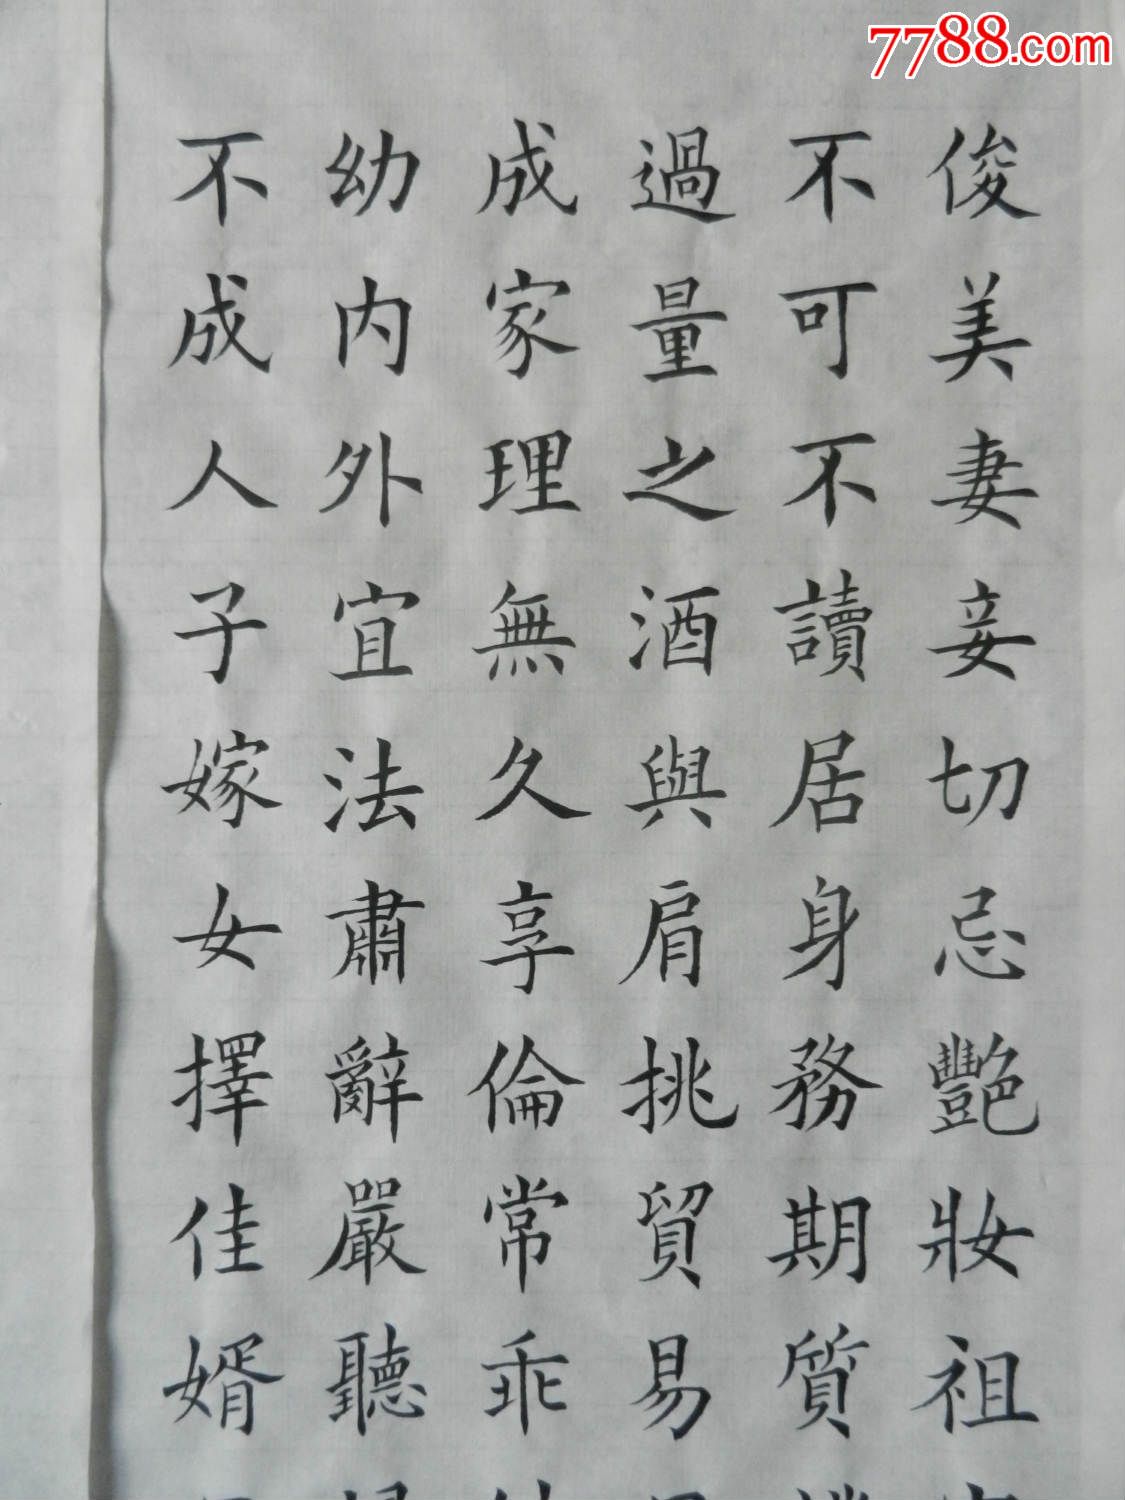 7788.com
俊美妻妾切忌艷妝祖
不可不讀居身務期質
過量之酒與肩挑貿易
成家理無久享倫常乖
幼內外宜法肅辭嚴聽
不成人子嫁女擇佳婿